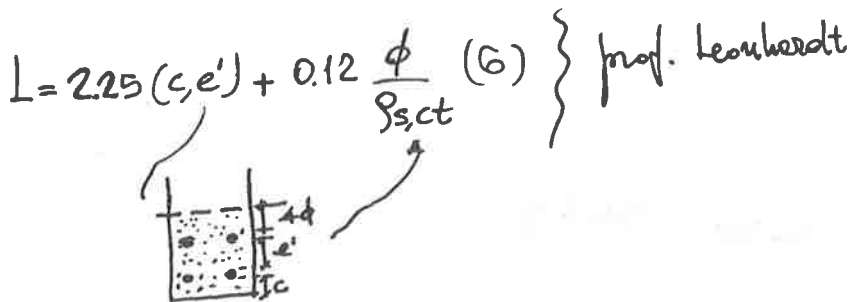 L = 2.25 (c, e') + 0.12 ϕ/ρs,ct (6) } prof. Leonhardt
4ϕ
e'
c